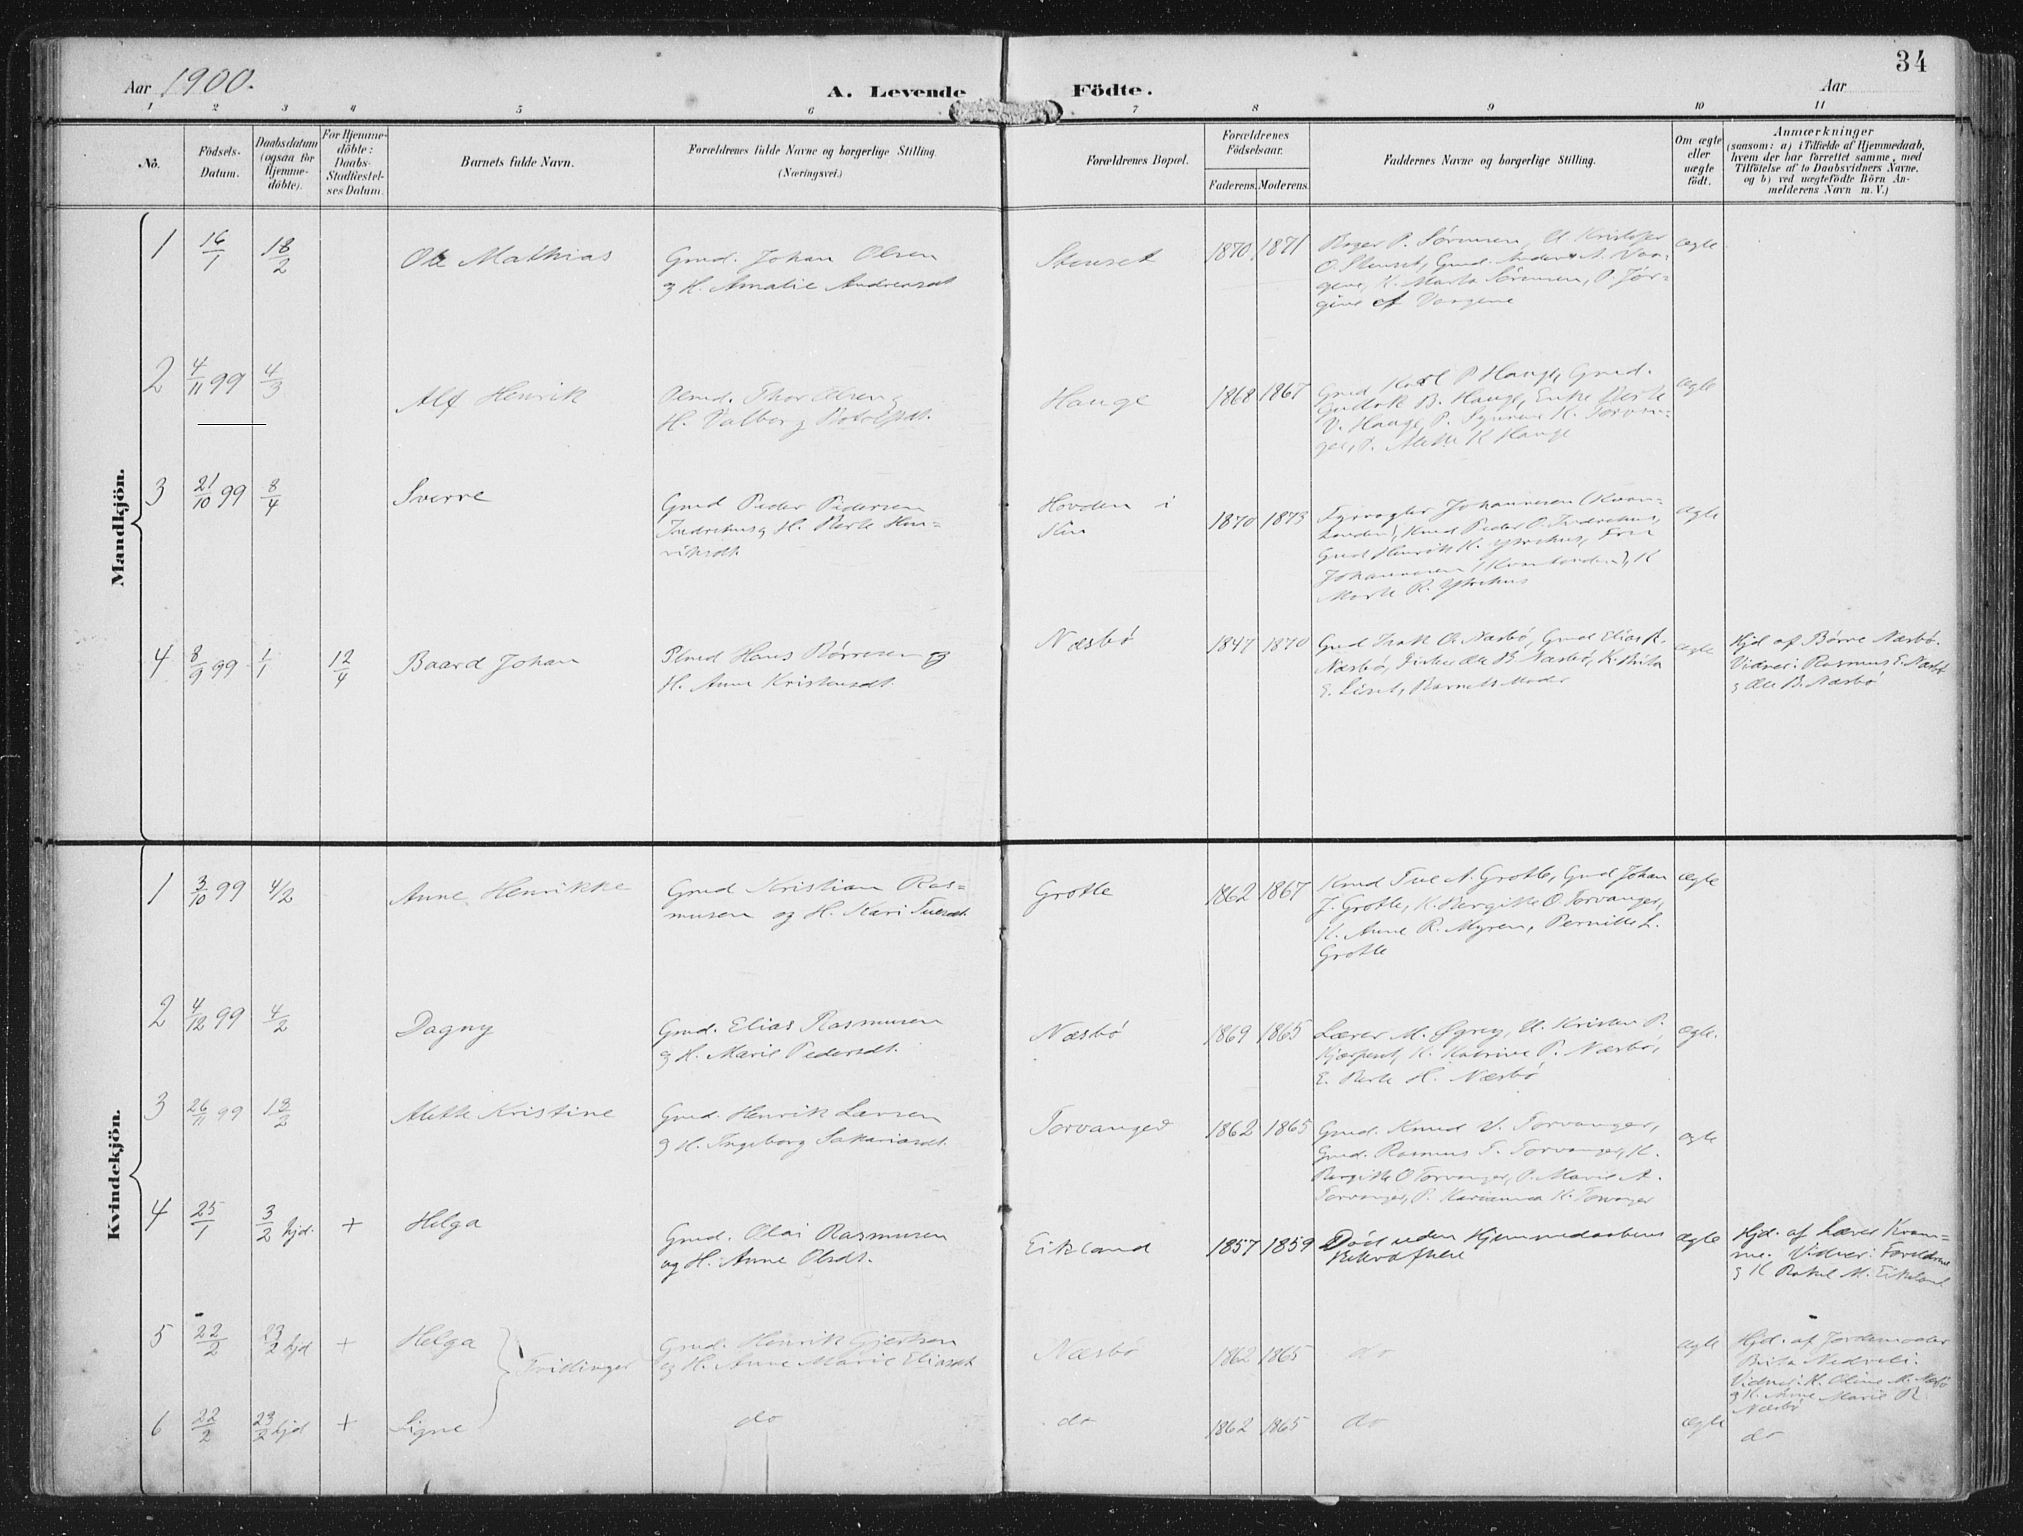 34
Aar 1900.
A. Levende Födte.
Aar
1 2 3 4 5 6 7 8 9 10 11
No.
Födsels-Datum.
Daabsdatum (ogsaa for Hjemme-döbte).
For Hjemme-döbte: Daabs-Stadfæstel-ses Datum.
Barnets fulde Navn.
Forældrenes fulde Navne og borgerlige Stilling. (Næringsvei.)
Forældrenes Bopæl.
Forældrenes Födselsaar.
Faderens. Moderens.
Faddernes Navne og borgerlige Stilling.
Om ægte eller uægte födt.
Anmærkninger
(saasom: a) i Tilfælde af Hjemmedaab,
hvem der har forrettet samme, med
Tilföielse af to Daabsvidners Navne,
og b) ved uægtefödte Börn An-
melderens Navn m. V.)
Mandkjön.
1 16/1 18/2 Ole Mathias
Gmd. Johan Olsen
og H. Amalie Andreasdt
Stenset 1870 1871
P. Sörensen, U. Kristofer
O. Stenset, Gmd. Anders A. Vaa-
gene, K. Marta Sörensen, P. Jör-
gine Vaagene
ægte
2 4/11 99 4/3 Alf Henrik
Thor Olsen og
H. Valborg
Hauge 1868 1867
Gmd Karl P Hauge, Gmd.
B. Hauge, Enke Berte
V. Hauge, P. K. Torvan-
ger, P. Alette K Hauge
ægte
3 21/10 99 8/4 Sverre
Gmd Peder Pedersen
Indrehus og H. Berte Hen-
riksdt
Hovden i
Kin
1870 1873
Fyrvogter Johannesen (Kvan-
Gmd Peder P. Indrehus,
Gmd Henrik K. Ytrehus, Fru
Johannesen, K
Marte R. Ytrehus
ægte
4 8/9 99 1/1 12/4 Baard Johan
Hans Börresen og
H. Anne Kristensdt.
Næsbö 1847 1870
Gmd Isak O. Næsbö, Gmd Elias R.
Næsbö, Ole B. Næsbö, K. Brita
E. Liset, Barnets Moder
ægte
Hjd af Börre Næsbö.
Vidner: Rasmus E. Næsbö
og Ole B. Næsbö
Kvindekjön.
1 3/10 99 4/2 Anne Henrikke
Gmd Kristian Ras-
musen og H. Kari Tuesdt.
Grotle 1862 1867
Gmd Tue N. Grotle, Gmd Johan
J. Grotle, K. Bergitte O Torvanger,
K. Anne R. Myren, Pernille L.
Grotle
ægte
2 4/12 99 4/2 Dagny
Gmd. Elias Rasmusen
og H. Marie Pedersdt.
Næsbö 1869 1865
Lærer M. Øyrey, U. Kristen P.
K. Katrine P. Næsbö,
E. Berte H. Næsbö
ægte.
3 26/11 99 18/2 Alette Kristine
Gmd. Henrik Larsen
og H. Ingeborg Sakariasdt.
Torvanger 1862 1865
Gmd. Knud V. Torvanger,
Gmd. Rasmus T. Torvanger, K.
Bergitte O Torvanger, P. Marie A.
Torvanger, P. Karianna K. Torvanger
ægte
4 25/1 3/2 hjd. + Helga
Gmd. Olai Rasmusen
og H. Anne Olsdt.
Eikeland 1857 1859
Död uden Hjemmedaabens
Bekræftelse
ægte
Hjd. af Lærer Kvam-
me. Vidner: Forældrene
og K Rakel M. Eikeland
5 22/2 23/2 hjd + Helga
Tvillinger
Gmd. Henrik Gjertsen
og H. Anne Marie Eliasdt
Næsbö 1862 1865
do
ægte
Hjd. af Jordemoder
Brita Nedreli.
Vidner: K. Oline M. Næsbö
og K. Anne Marie R.
Næsbö
6 22/2 23/2 hjd + Signe
do
do 1862 1865
do
ægte
do